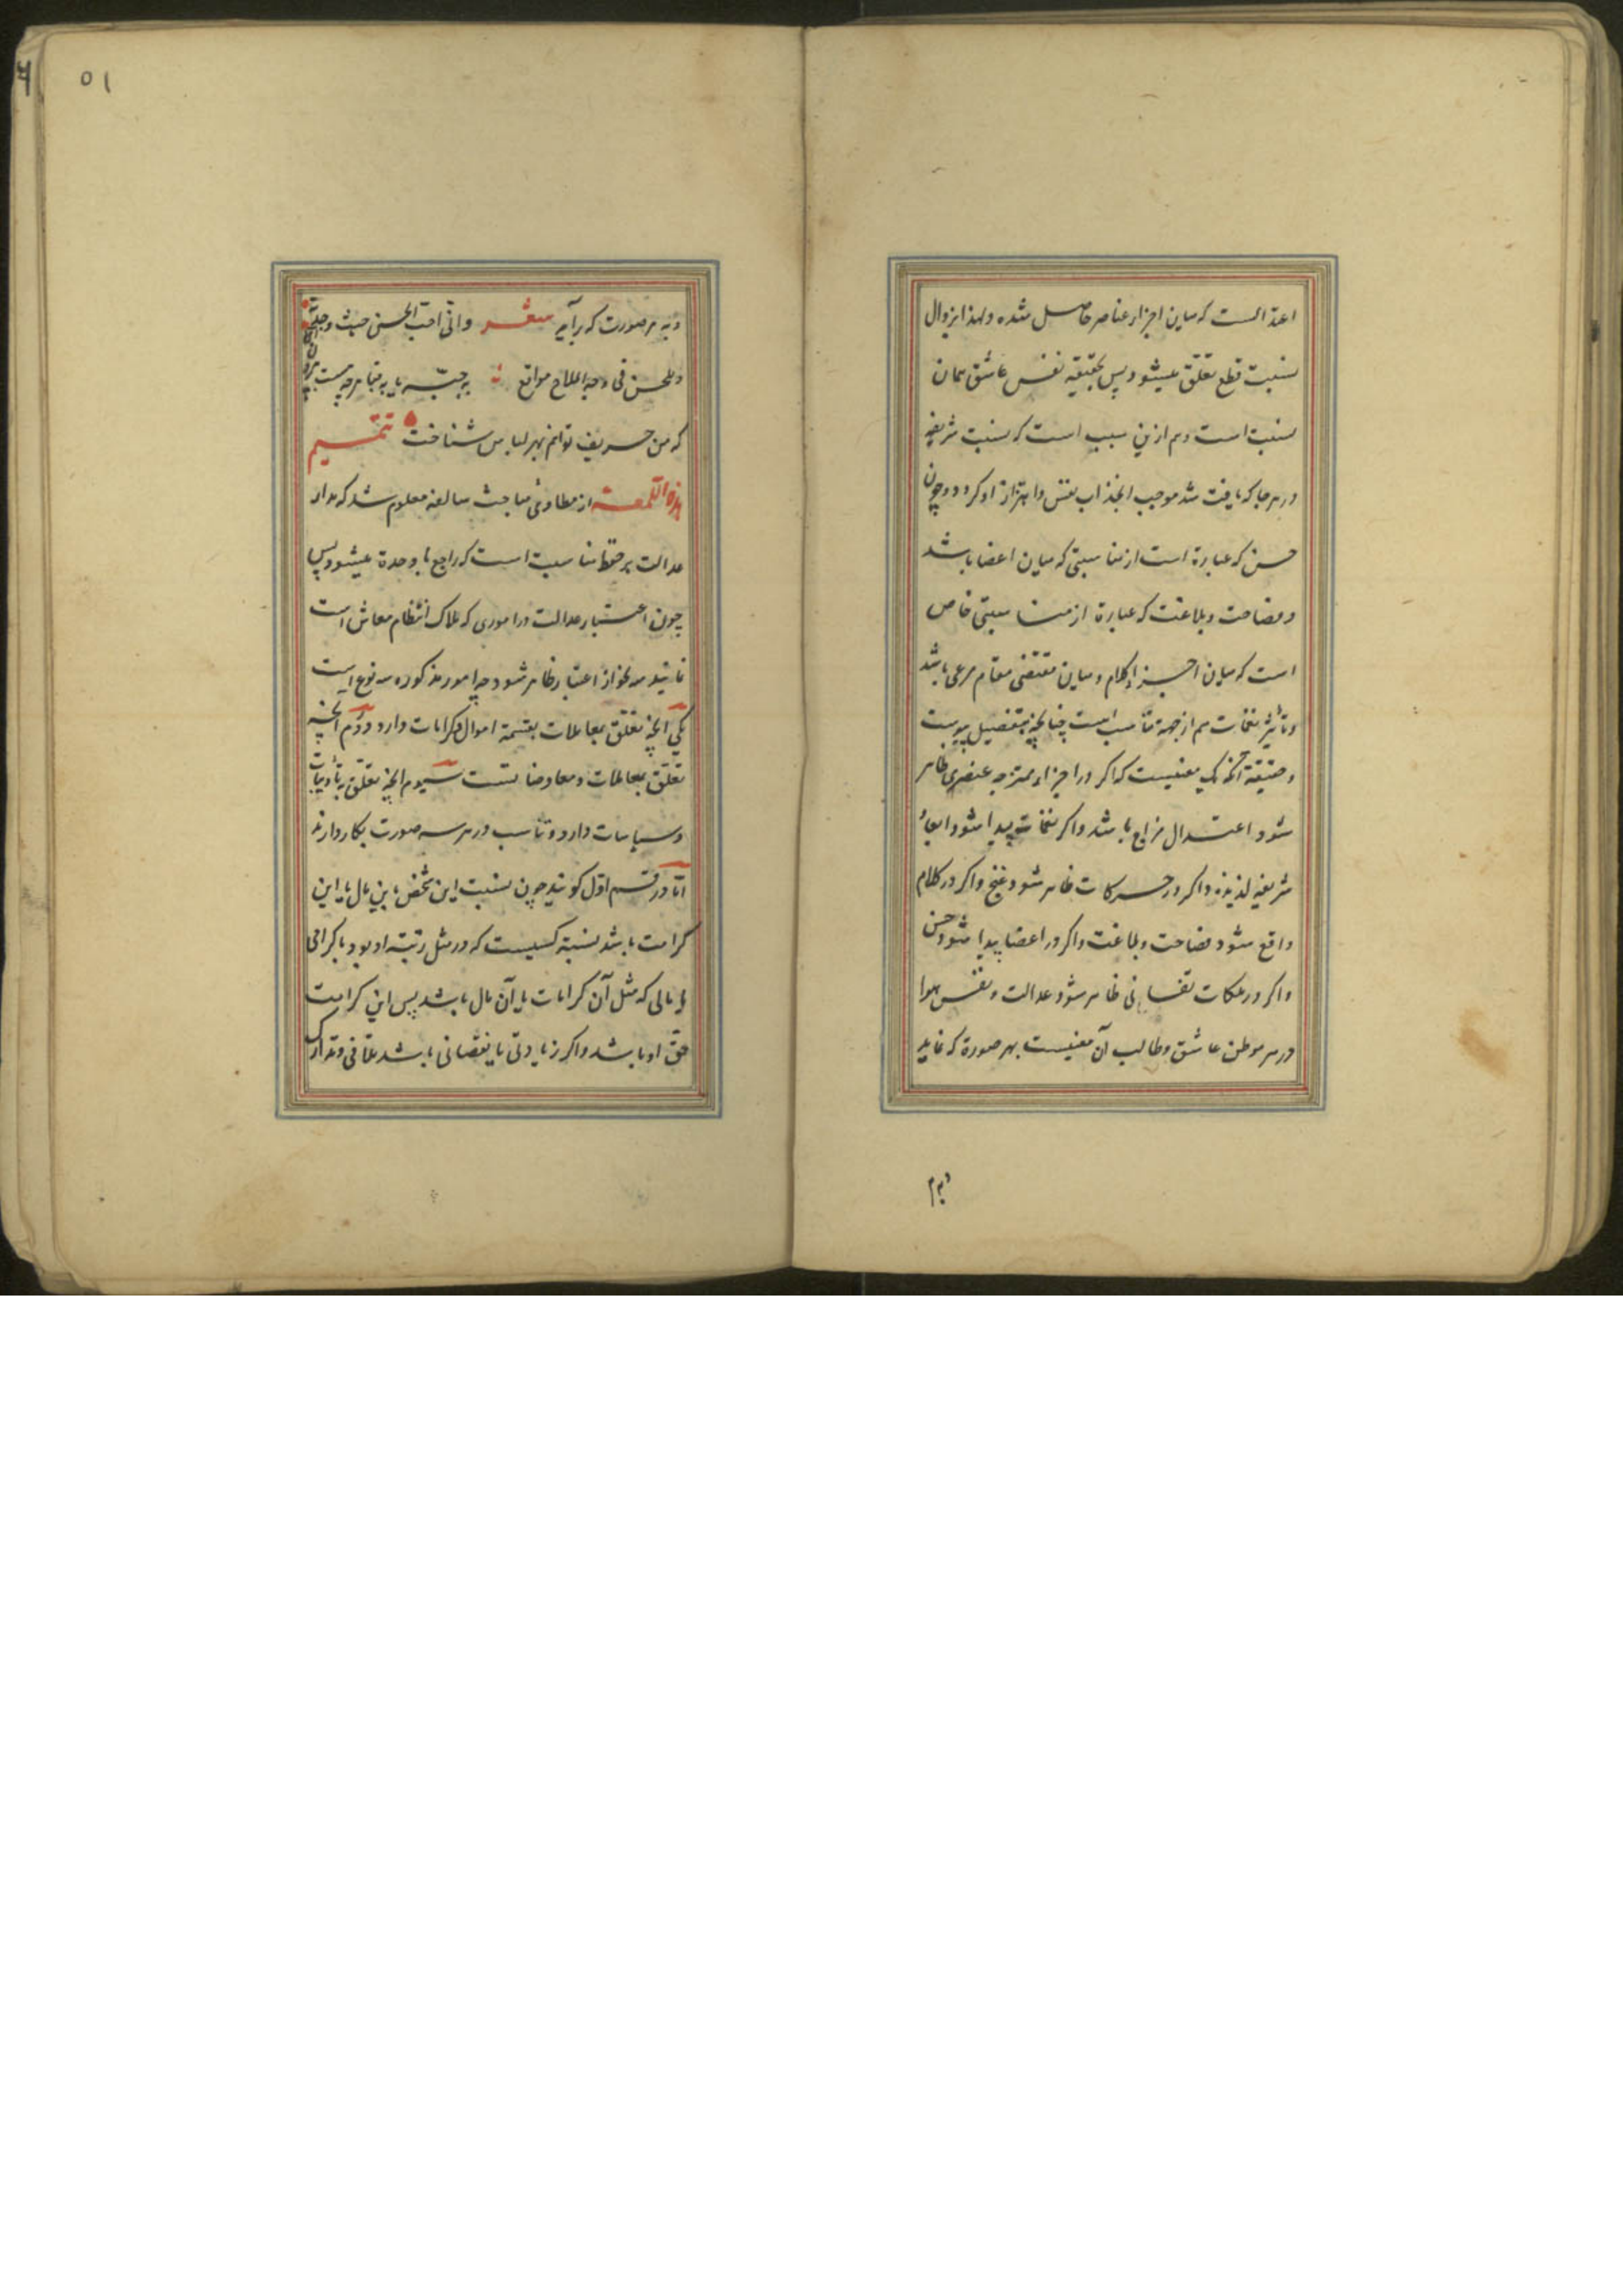 اعتدالست که میان اجزاء عناصر حاصل شده ولهذا بزوال
نسبت قطع تعلق میشود پس بحقیقه نفس عاشق همان
نسبت است وهم ازین سبب است که نسبت شریفه
در هر جا که یافت شد موجب انجذاب نفس واهتزاز او کردد وچون
حسن که عبارة است از مناسبتی که میان اعضا باشد
وفصاحت وبلاغت که عبارة از مناسبتی خاص
است که میان اجزاء کلام ومیان مقتضی مقام مرعی باشد
وتأثیر نغمات هم از جهة تناسب است چنانچه بتفصیل پیوست
وحقیقة آنکه یک معنیست که اکر در اجزاء ممتزجه عنصری ظاهر
شود اعتدال مزاج باشد واکر در نغمات پیدا شود ابعاد
شریفه لذیذه واکر در حرکات ظاهر شود غنج واکر در کلام
واقع شود فصاحت وبلاغت واکر در اعضا پیدا شود حسن
واکر در ملکات نفسانی ظاهر شود عدالت ونفس هوا
در هر موطن عاشق وطالب آن معنیست بهر صورة که نماید
وبهر صورت که برآید شعر وانی احب الحسن حیث وجدته
وللحسن فی وجه الملاح مواقع
که من حریف توانم بهر لباس شناخت تتمیم
هذه اللمعه از مطاوی مباحث سالفه معلوم شد که مدار
عدالت بر حفظ مناسبت است که راجع با وحدة میشود پس
چون اعتبار عدالت در اموری که ملاک انتظام معاش است
نمایند سه نحو از اعتبار ظاهر شود چه امور مذکوره سه نوع است
یکی آنچه تعلق بمعاملات بقسمة اموال وکرامات دارد ودوم آنچه
تعلق بمعاملات ومعاوضات سیوم آنچه تعلق بتأدیبات
وسیاسات دارد وتناسب در هر سه صورت بکار دارند
اما در قسم اول کویند چون نسبت این شخص باین مال یا این
کرامت باشد نسبة کسیست که در مثل رتبة او بود با کرامتی
یا مالی که مثل آن کرامات یا آن مال باشد پس این کرامت
حق او باشد واکر زیادتی یا نقصانی باشد تلافی وتدارک
وبهر
۵۱